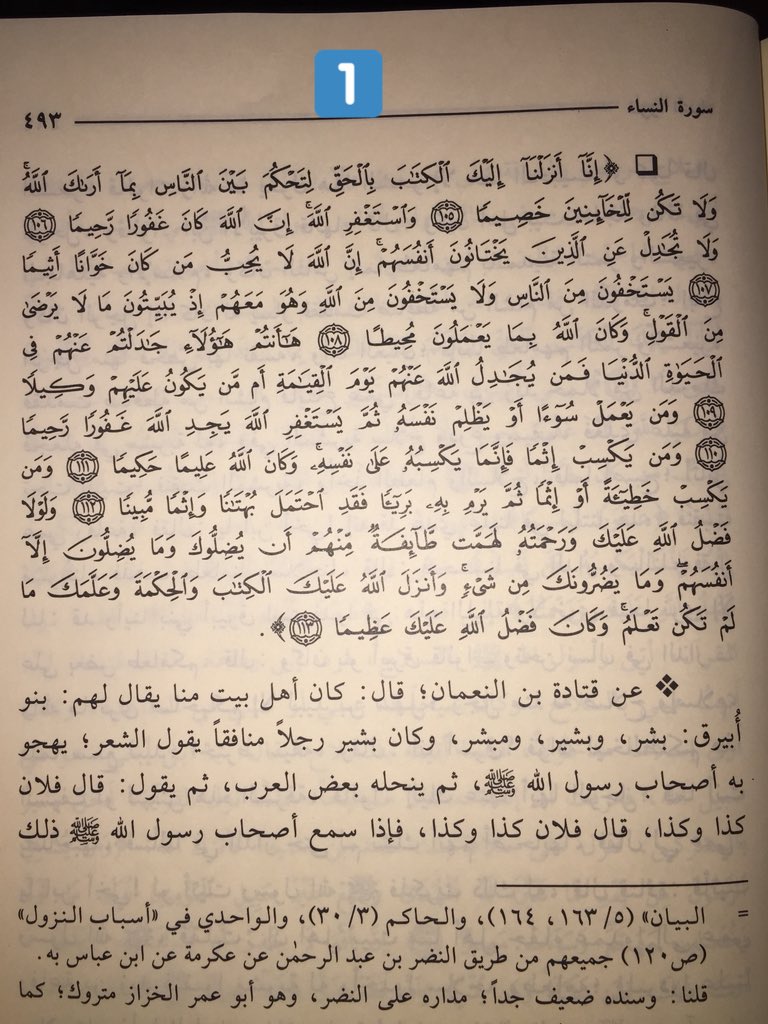 1
سورة النساء ٤٩٣
❑ ﴿إِنَّآ أَنزَلْنَآ إِلَيْكَ ٱلْكِتَٰبَ بِٱلْحَقِّ لِتَحْكُمَ بَيْنَ ٱلنَّاسِ بِمَآ أَرَىٰكَ ٱللَّهُ ۚ
وَلَا تَكُن لِّلْخَآئِنِينَ خَصِيمًا ﴿١٠٥﴾ وَٱسْتَغْفِرِ ٱللَّهَ ۖ إِنَّ ٱللَّهَ كَانَ غَفُورًا رَّحِيمًا ﴿١٠٦﴾
وَلَا تُجَٰدِلْ عَنِ ٱلَّذِينَ يَخْتَانُونَ أَنفُسَهُمْ ۚ إِنَّ ٱللَّهَ لَا يُحِبُّ مَن كَانَ خَوَّانًا أَثِيمًا
﴿١٠٧﴾ يَسْتَخْفُونَ مِنَ ٱلنَّاسِ وَلَا يَسْتَخْفُونَ مِنَ ٱللَّهِ وَهُوَ مَعَهُمْ إِذْ يُبَيِّتُونَ مَا لَا يَرْضَىٰ
مِنَ ٱلْقَوْلِ ۚ وَكَانَ ٱللَّهُ بِمَا يَعْمَلُونَ مُحِيطًا ﴿١٠٨﴾ هَٰٓأَنتُمْ هَٰٓؤُلَآءِ جَٰدَلْتُمْ عَنْهُمْ فِى
ٱلْحَيَوٰةِ ٱلدُّنْيَا فَمَن يُجَٰدِلُ ٱللَّهَ عَنْهُمْ يَوْمَ ٱلْقِيَٰمَةِ أَم مَّن يَكُونُ عَلَيْهِمْ وَكِيلًا
﴿١٠٩﴾ وَمَن يَعْمَلْ سُوٓءًا أَوْ يَظْلِمْ نَفْسَهُۥ ثُمَّ يَسْتَغْفِرِ ٱللَّهَ يَجِدِ ٱللَّهَ غَفُورًا رَّحِيمًا
﴿١١٠﴾ وَمَن يَكْسِبْ إِثْمًا فَإِنَّمَا يَكْسِبُهُۥ عَلَىٰ نَفْسِهِۦ ۚ وَكَانَ ٱللَّهُ عَلِيمًا حَكِيمًا ﴿١١١﴾ وَمَن
يَكْسِبْ خَطِيٓئَةً أَوْ إِثْمًا ثُمَّ يَرْمِ بِهِۦ بَرِيٓئًا فَقَدِ ٱحْتَمَلَ بُهْتَٰنًا وَإِثْمًا مُّبِينًا ﴿١١٢﴾ وَلَوْلَا
فَضْلُ ٱللَّهِ عَلَيْكَ وَرَحْمَتُهُۥ لَهَمَّت طَّآئِفَةٌ مِّنْهُمْ أَن يُضِلُّوكَ وَمَا يُضِلُّونَ إِلَّآ
أَنفُسَهُمْ ۖ وَمَا يَضُرُّونَكَ مِن شَىْءٍ ۚ وَأَنزَلَ ٱللَّهُ عَلَيْكَ ٱلْكِتَٰبَ وَٱلْحِكْمَةَ وَعَلَّمَكَ مَا
لَمْ تَكُن تَعْلَمُ ۚ وَكَانَ فَضْلُ ٱللَّهِ عَلَيْكَ عَظِيمًا ﴿١١٣﴾﴾.
❖ عن قتادة بن النعمان؛ قال: كان أهل بيت منا يقال لهم: بنو
أُبيرق: بشر، وبشير، ومبشر، وكان بشير رجلاً منافقاً يقول الشعر؛ يهجو
به أصحاب رسول الله ﷺ، ثم ينحله بعض العرب، ثم يقول: قال فلان
كذا وكذا، قال فلان كذا وكذا، فإذا سمع أصحاب رسول الله ﷺ ذلك
= البيان» (٥/ ١٦٣، ١٦٤)، والحاكم (٣/ ٣٠)، والواحدي في «أسباب النزول»
(ص١٢٠) جميعهم من طريق النضر بن عبد الرحمٰن عن عكرمة عن ابن عباس به.
قلنا: وسنده ضعيف جداً؛ مداره على النضر، وهو أبو عمر الخزاز متروك؛ كما